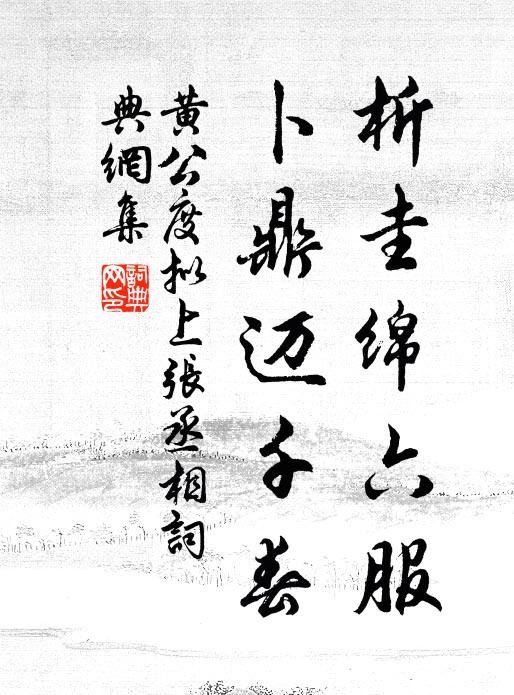 析圭绵六服
卜鼎迈千春
黄公度拟上張丞相詞
典網集
詞典
网印